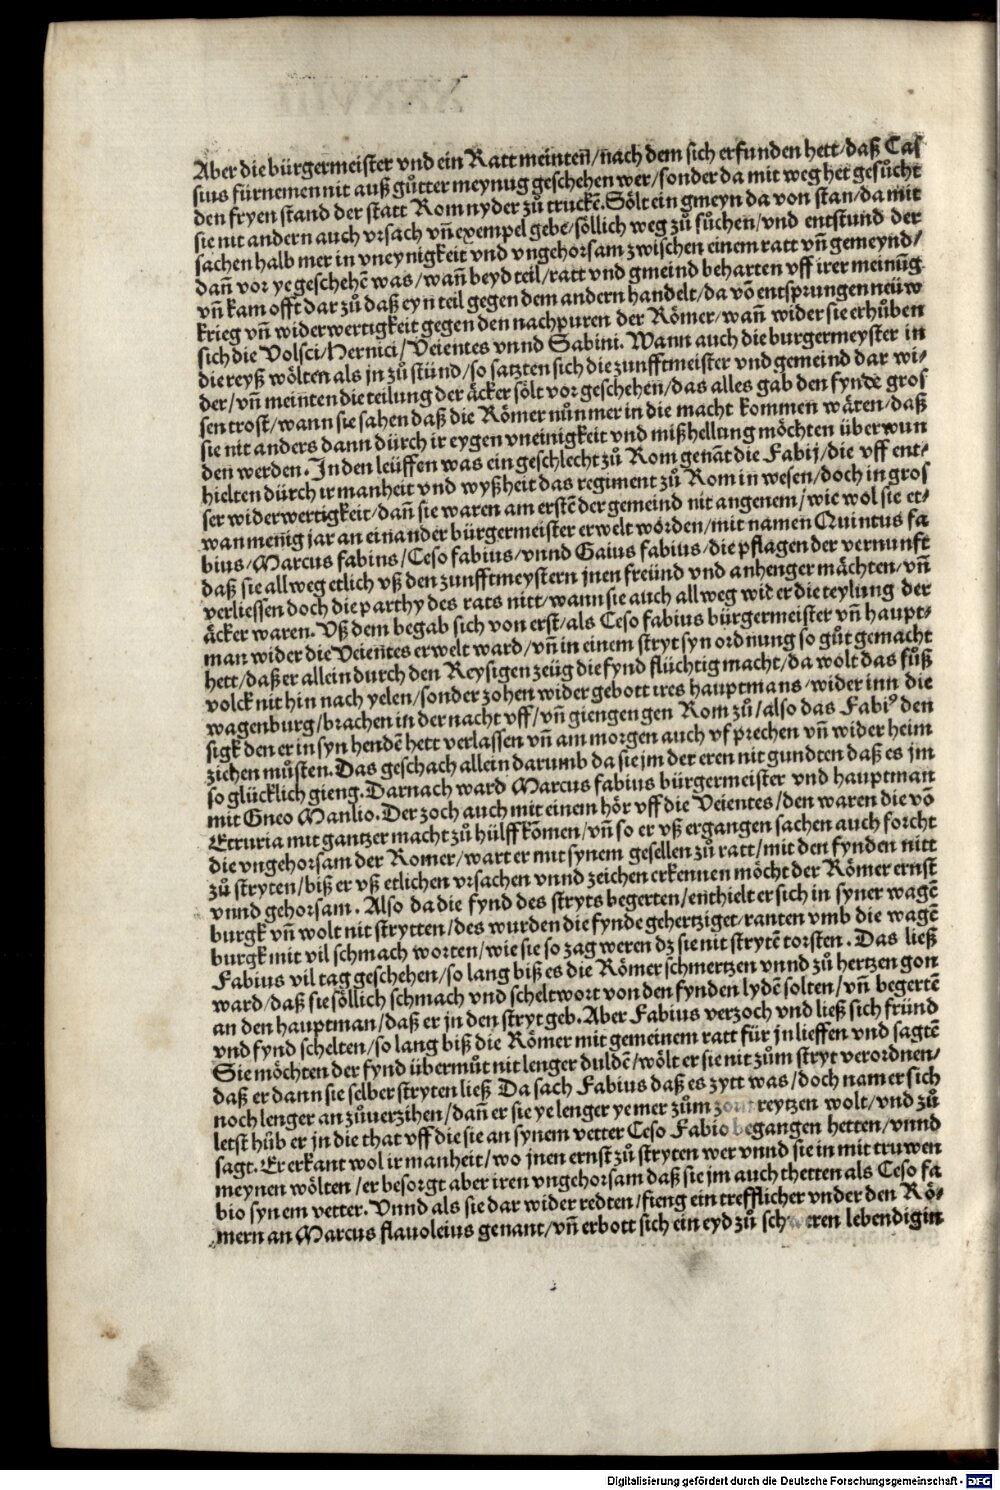 Aber die bürgermeister vnd ein Ratt meinten̄/nach dem sich erfunden hett/daß Cas
sius fürnemen nit auß gůtter meynug geschehen wer/sonder da mit weg het gesůcht
den fryen stand der statt Rom nyder zů truckē. Sölt ein gmeyn da von stan/da mit
sie nit andern auch vrsach vn̄ exempel gebe/söllich weg zů sůchen/vnd entstund der
sachen halb mer in vneynigkeit vnd vngehorsam zwischen einem ratt vn̄ gemeynd/
dan̄ vor ye geschehē was/wan̄ beyd teil/ratt vnd gmeind beharten vff irer meinūg
vn̄ kam offt dar zů daß eyn teil gegen dem andern handelt/da vō entsprungen neüw
krieg vn̄ widerwertigkeit gegen den nachpuren der Römer/wan̄ wider sie erhůben
sich die Volsci/Hernici/Veientes vnnd Sabini. Wann auch die burgermeyster in
die reyß wölten als jn zů stünd/so satzten sich die zunfftmeister vnd gemeind dar wi⸗
der/vn̄ meinten die teilung der äcker sölt vor geschehen/das alles gab den fynde gros
sen trost/wann sie sahen daß die Römer nůn mer in die macht kommen wären/daß
sie nit anders dann dürch ir eygen vneinigkeit vnd mißhellung möchten überwun
den werden. In den leüffen was ein geschlecht zů Rom genāt die Fabij/die vff ent⸗
hielten dürch ir manheit vnd wyßheit das regiment zů Rom in wesen/doch in gros
ser widerwertigkeit/dan̄ sie waren am erstē der gemeind nit angenem/wie wol sie et⸗
wan menig jar an einander bürgermeister erwelt wörden/mit namen Quintus fa
bius/Marcus fabius/Ceso fabius/vnnd Gaius fabius/die pflagen der vernunft
daß sie allweg etlich vß den zunfftmeystern jnen freünd vnd anhenger mächten/vn̄
verliessen doch die parthy des rats nitt/wann sie auch allweg wider die teylung der
äcker waren. Vß dem begab sich von erst/als Ceso fabius bürgermeister vn̄ haupt⸗
man wider die Veientes erwelt ward/vn̄ in einem stryt syn ordnung so gůt gemacht
hett/daß er allein durch den Reysigen zeüg die fynd flüchtig macht/da wolt das fůß
volck nit hin nach yelen/sonder zohen wider gebott ires hauptmans/wider inn die
wagenburg/brachen in der nacht vff/vn̄ giengen gen Rom zů/also das Fabiꝰ den
sigk den er in syn hendē hett verlassen vn̄ am morgen auch vfprechen vn̄ wider heim
ziehen můsten. Das geschach allein darumb da sie jm der eren nit gundten daß es jm
so glücklich gieng. Darnach ward Marcus fabius bürgermeister vnd hauptman
mit Gneo Manlio. Der zoch auch mit einem hör vff die Veientes/den waren die vō
Etruria mit gantzer macht zů hülff kōmen/vn̄ so er vß ergangen sachen auch forcht
die vngehorsam der Romer/wart er mit synem gesellen zů ratt/mit den fynden nitt
zů stryten/biß er vß etlichen vrsachen vnnd zeichen erkennen möcht der Römer ernst
vnnd gehorsam. Also da die fynd des stryts begerten/enthielt er sich in syner wagē
burgk vn̄ wolt nit strytten/des wurden die fynde gehertziget/ranten vmb die wagē
burgk mit vil schmach worten/wie sie so zag weren dz sie nit strytē torsten. Das ließ
Fabius vil tag geschehen/so lang biß es die Römer schmertzen vnnd zů hertzen gon
ward/daß sie söllich schmach vnd scheltwort von den fynden lydē solten/vn̄ begertē
an den hauptman/daß er jn den stryt geb. Aber Fabius verzoch vnd ließ sich fründ
vnd fynd schelten/so lang biß die Römer mit gemeinem ratt für jn lieffen vnd sagtē
Sie möchten der fynd übermůt nit lenger duldē/wölt er sie nit zům stryt verordnen/
daß er dann sie selber stryten ließ Da sach Fabius daß es zytt was/doch nam er sich
noch lenger an zůuerzihen/dan̄ er sie ye lenger ye mer zům zorn reytzen wolt/vnd zů
letst hůb er jn die that vff die sie an synem vetter Ceso Fabio begangen hetten/vnnd
sagt. Er erkant wol ir manheit/wo jnen ernst zů stryten wer vnnd sie in mit truwen
meynen wölten/er besorgt aber iren vngehorsam daß sie jm auch thetten als Ceso fa
bio synem vetter. Vnnd als sie dar wider redten/fieng ein trefflicher vnder den Rö⸗
mern an Marcus flauoleius genant/vn̄ erbott sich ein eyd zů schweren lebendig in
Digitalisierung gefördert durch die Deutsche Forschungsgemeinschaft - DFG